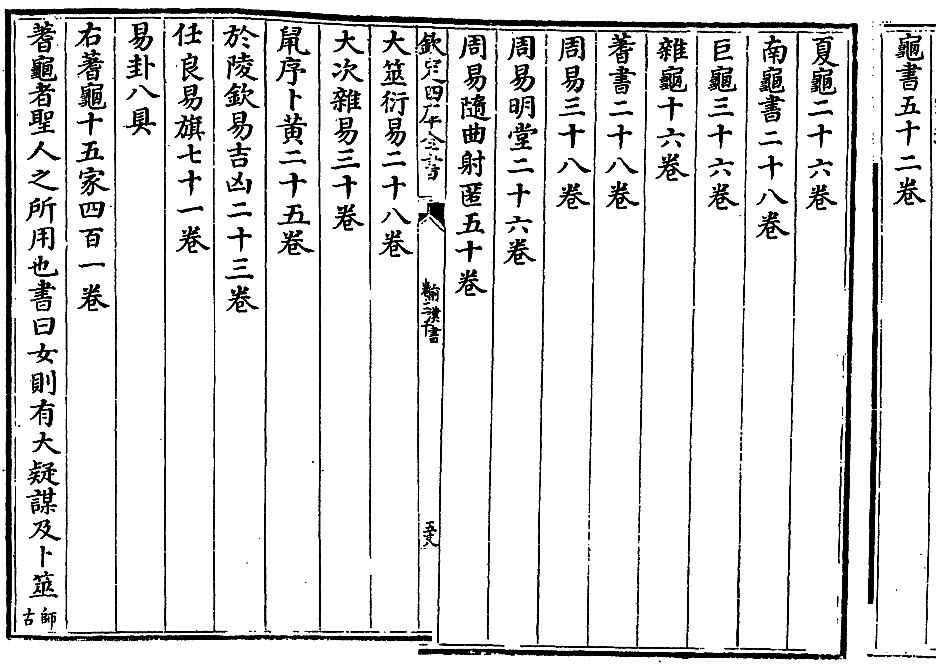 龜書五十二卷
夏龜二十六卷
南龜書二十八卷
巨龜三十六卷
雜龜十六卷
蓍書二十八卷
周易三十八卷
周易明堂二十六卷
周易隨曲射匿五十卷
欽定四庫全書
前漢書
卷三十
大筮衍易二十八卷
大次雜易三十卷
鼠序卜黃二十五卷
於陵欽易吉凶二十三卷
任良易旗七十一卷
易卦八具
右蓍龜十五家四百一卷
蓍龜者聖人之所用也書曰女則有大疑謀及卜筮師古